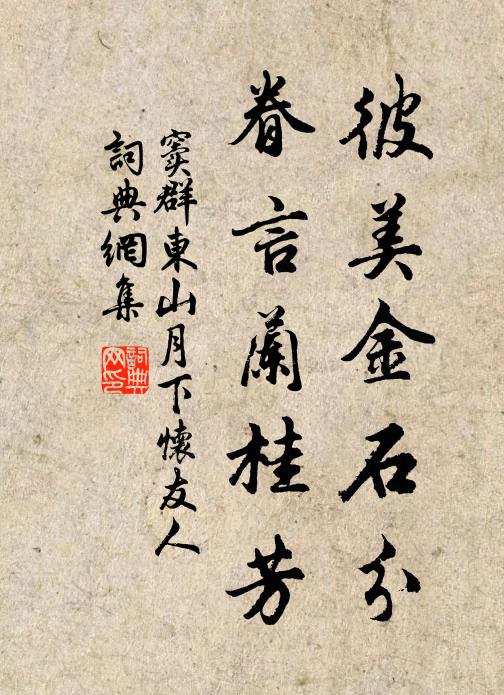 彼美金石分
眷言蘭桂芳
竇群東山月下懷友人
詞典網集
詞典網印